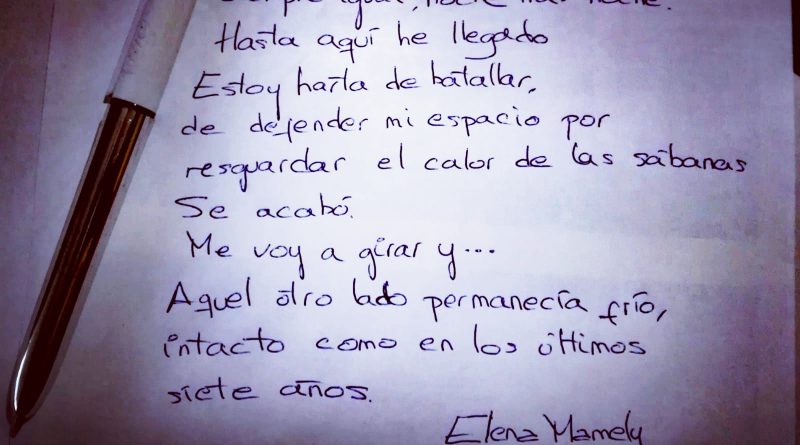 igual, noche tras noche.
Hasta aquí he llegado
Estoy harta de batallar,
de defender mi espacio por
resguardar el calor de las sábanas
Se acabó.
Me voy a girar y...
Aquel otro lado permanecía frío,
intacto como en los últimos
siete años.
Elena Mamely